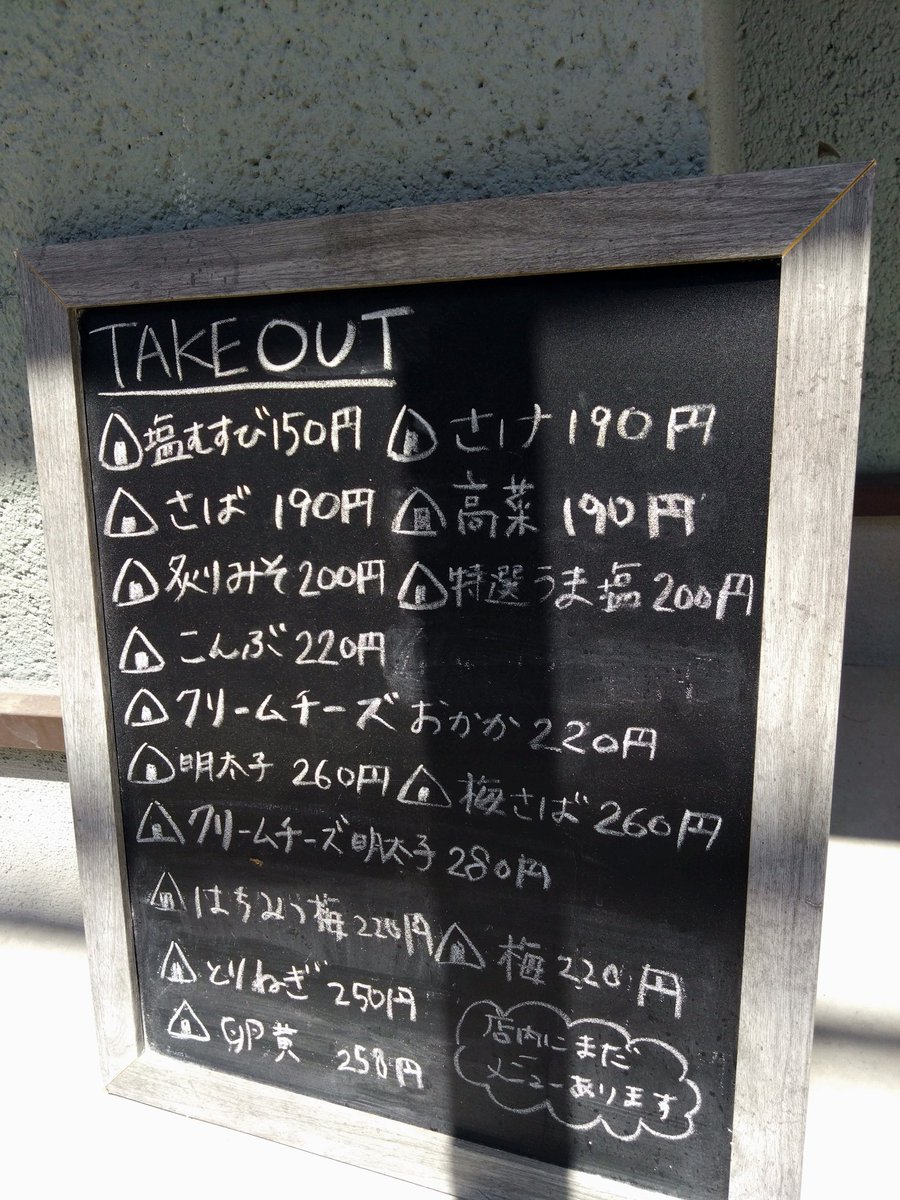 TAKEOUT
塩むすび150円 さけ190円
さば 190円 高菜 190円
炙りみそ200円 特選うま塩200円
こんぶ220円
クリームチーズおかか220円
明太子 260円 梅さば260円
クリームチーズ明太子280円
はちみつ梅220円 梅220円
とりねぎ250円
卵黄 250円
店内にまだ
メニューあります